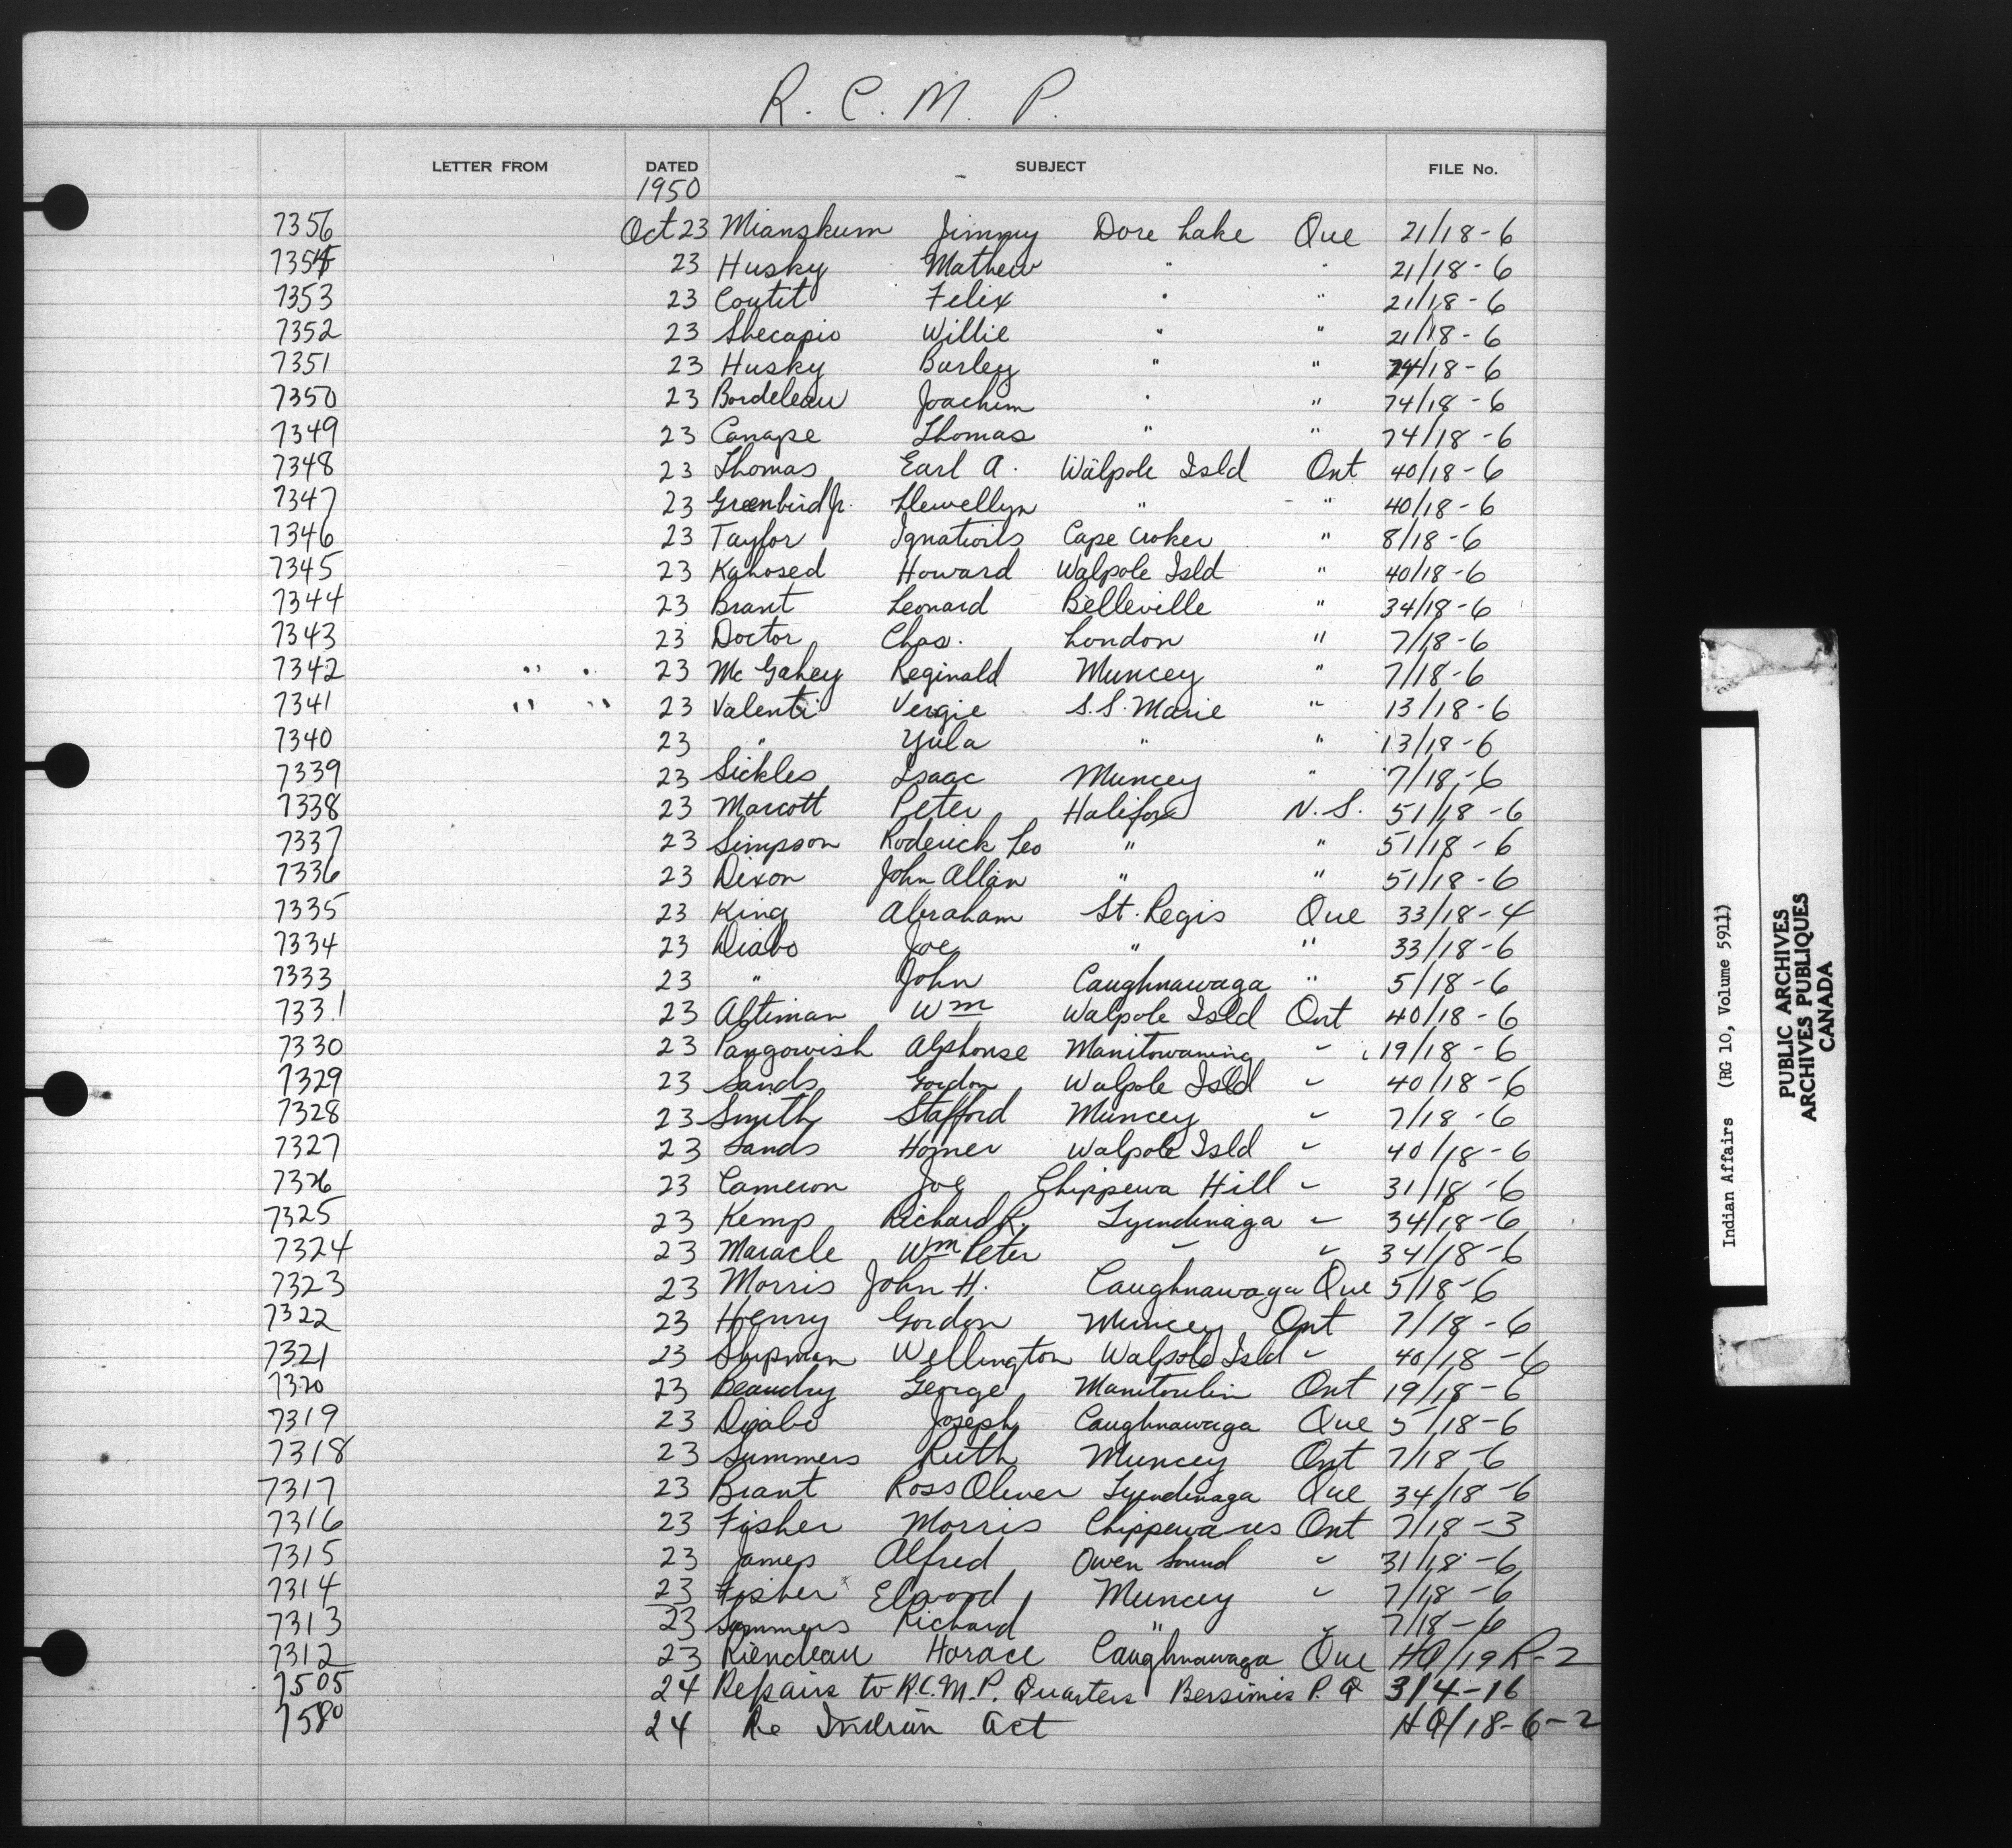 R. C. M. P.
LETTER FROM DATED SUBJECT FILE No.
1950
7356 Oct 23 Mianskum Jimmy Dore Lake Que 21/18-6
7354 23 Husky Mathew " " 21/18-6
7353 23 Coutit Felix " " 21/18-6
7352 23 Shecapio Willie " " 21/18-6
7351 23 Husky Burley " " 74/18-6
7350 23 Bordeleau Joachim " " 74/18-6
7349 23 Canape Thomas " " 74/18-6
7348 23 Thomas Earl A. Walpole Isld Ont 40/18-6
7347 23 Greenbird Jr. Llewellyn " " 40/18-6
7346 23 Taylor Ignatius Cape Croker " 8/18-6
7345 23 Kahosed Howard Walpole Isld " 40/18-6
7344 23 Brant Leonard Belleville " 34/18-6
7343 23 Doctor Chas. London " 7/18-6
7342 " " 23 Mc Gahey Reginald Muncey " 7/18-6
7341 " " 23 Valenti Vergie S.S. Marie " 13/18-6
7340 23 " Yula " " 13/18-6
7339 23 Sickles Isaac Muncey " 7/18-6
7338 23 Marcott Peter Halifax N.S. 51/18-6
7337 23 Simpson Roderick Leo " " 51/18-6
7336 23 Dixon John Allan " " 51/18-6
7335 23 King Abraham St. Regis Que 33/18-4
7334 23 Diabo Joe " " 33/18-6
7333 23 " John Caughnawaga " 5/18-6
7331 23 Altiman Wm Walpole Isld Ont 40/18-6
7330 23 Pangowish Alphonse Manitowaning " 19/18-6
7329 23 Sands Gordon Walpole Isld " 40/18-6
7328 23 Smith Stafford Muncey " 7/18-6
7327 23 Sands Homer Walpole Isld " 40/18-6
7326 23 Cameron Joe Chippewa Hill " 31/18-6
7325 23 Kemp Richard R. Tyendinaga " 34/18-6
7324 23 Maracle Wm Peter " " 34/18-6
7323 23 Morris John H. Caughnawaga Que 5/18-6
7322 23 Henry Gordon Muncey Ont 7/18-6
7321 23 Shipman Wellington Walpole Isld " 40/18-6
7320 23 Beaudry George Manitoulin Ont 19/18-6
7319 23 Diabo Joseph Caughnawaga Que 5/18-6
7318 23 Summers Ruth Muncey Ont 7/18-6
7317 23 Brant Ross Oliver Tyendinaga Que 34/18-6
7316 23 Fisher Morris Chippewa res Ont 7/18-3
7315 23 James Alfred Owen Sound " 31/18-6
7314 23 Fisher Elwood Muncey " 7/18-6
7313 23 Summers Richard " " 7/18-6
7312 23 Riendeau Horace Caughnawaga Que HQ/19 R-2
7505 24 Repairs to R.C.M.P. Quarters Bersimis P.Q 3/4-16
7580 24 Re Indian Act HQ/18-6-2
Indian Affairs (RG 10, Volume 5911)
PUBLIC ARCHIVES
ARCHIVES PUBLIQUES
CANADA